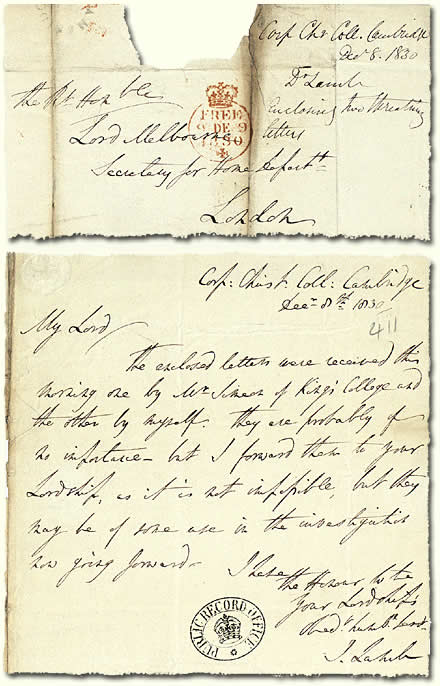 Corp Chr Coll. Cambridge
Decr 8. 1830
Dr Lamb
Enclosing two threatning
letters
The Rt Honble
FREE
9 DE 9
1830
Lord Melbourne
Secretary for Home Departt
London
Corp: Christ. Coll: Cambridge
Decr 8th 1830
411
My Lord
The enclosed letters were received this
morning one by Mr Simeon of King's College and
the other by myself. They are probably of
no importance - but I forward them to your
Lordship, as it is not impossible, but they
may be of some use in the investigation
now going forward -
I have
the Honor to be
your Lordship's
Obedt humble servt
J. Lamb
PUBLIC RECORD OFFICE